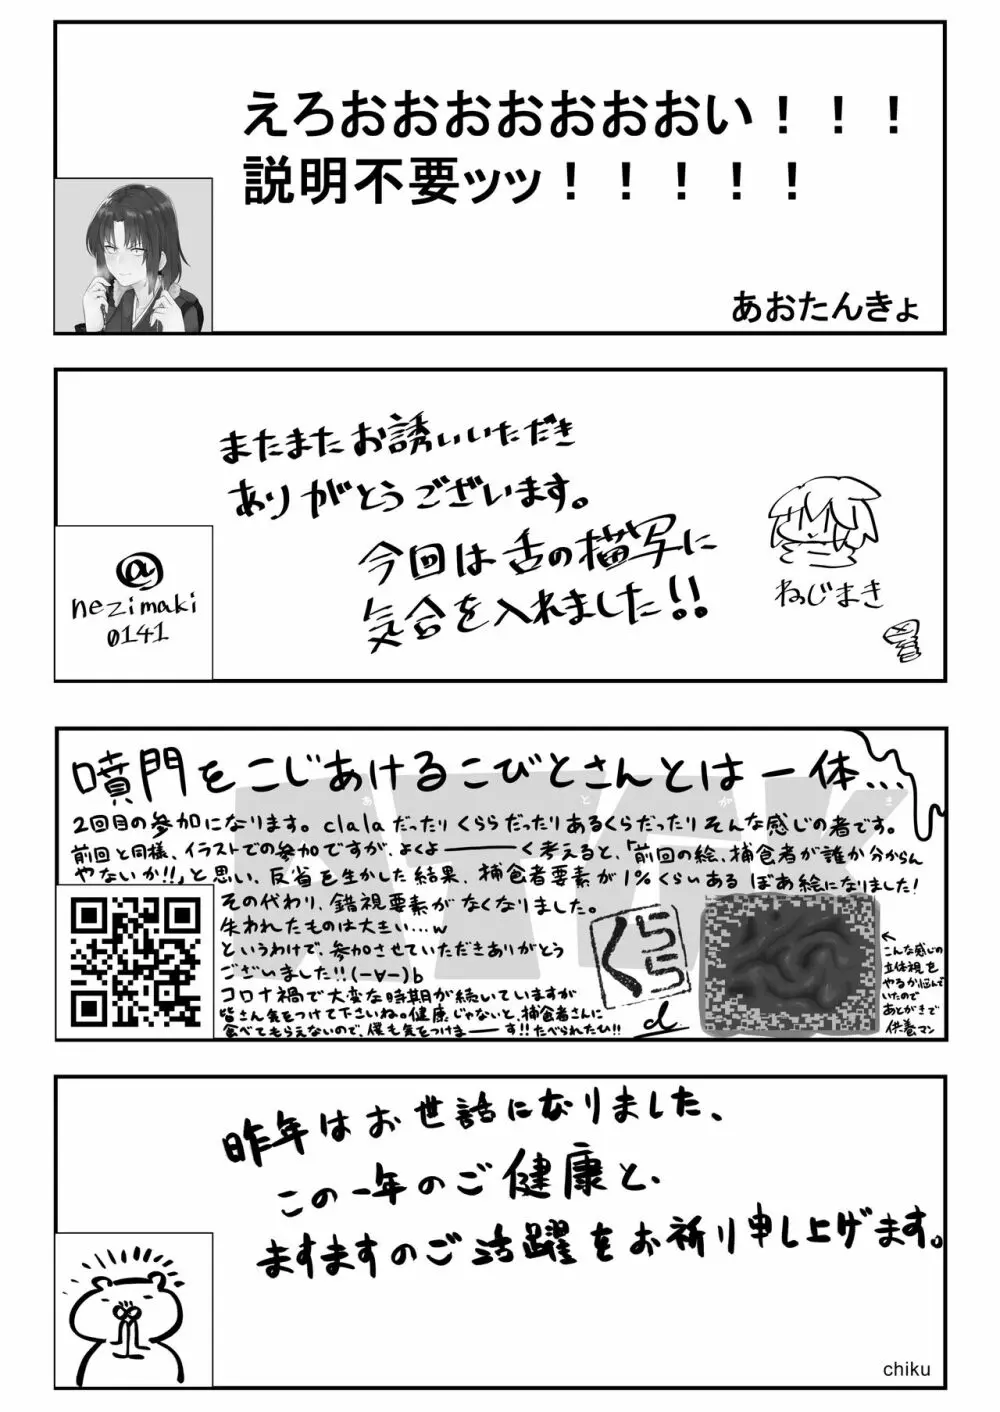 えろおおおおおおおい！！！
説明不要ッッ！！！！！
あおたんきょ
またまたお誘いいただき
ありがとうございます。
今回は舌の描写に
気合を入れました!!
@
nezimaki
0141
ねじまき
噴門をこじあけるこびとさんとは一体…
あとがき
2回目の参加になります。clalaだったりくららだったりあるくらだったりそんな感じの者です。
前回と同様、イラストでの参加ですが、よくよーーーく考えると、「前回の絵、捕食者が誰か分からん
やないか!!」と思い、反省を生かした結果、捕食者要素が1%くらいあるぼあ絵になりました!
その代わり、錯視要素がなくなりました。
失われたものは大きい…w
というわけで、参加させていただきありがとう
ございました!!(ー∀ー)b
コロナ禍で大変な時期が続いていますが
皆さん気をつけて下さいね。健康じゃないと、捕食者さんに
食べてもらえないので、僕も気をつけまーーす!!たべられたひ!!
くらら
d
←
こんな感じの
立体視を
やるか悩んで
いたので
あとがきで
供養マン
昨年はお世話になりました、
この一年のご健康と、
ますますのご活躍をお祈り申し上げます。
chiku